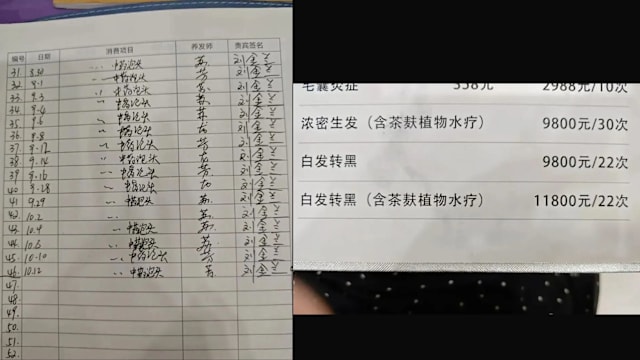 编号 日期 消费项目 养发师 贵宾签名
31 8.30 中药泡头 刘金兰
32. 9.1 中药泡头 芳 刘金兰
33. 9.3 中药泡头 刘金兰
34. 9.4 中药泡头 刘金兰
35. 9.6 中药泡头 刘金兰
36. 9.8 中药泡头 刘金兰
37. 9.12 中药泡头 芳 刘金兰
38. 9.14 中药泡头 刘金兰
39. 9.16 中药泡头 芳 刘金兰
40. 9.28 中药泡头 刘金兰
41 9.29 中药泡头 刘金兰
42. 10.2 刘金兰
43. 10.4 中药泡头 刘金兰
44. 10.6 中药泡头 刘金兰
45. 10.10 中药泡头 芳 刘金兰
46. 10.12 中药泡头 刘金兰
47.
48.
49.
50.
51.
52.
毛囊炎症 358元 2988元/10次
浓密生发（含茶麸植物水疗） 9800元/30次
白发转黑 9800元/22次
白发转黑（含茶麸植物水疗） 11800元/22次